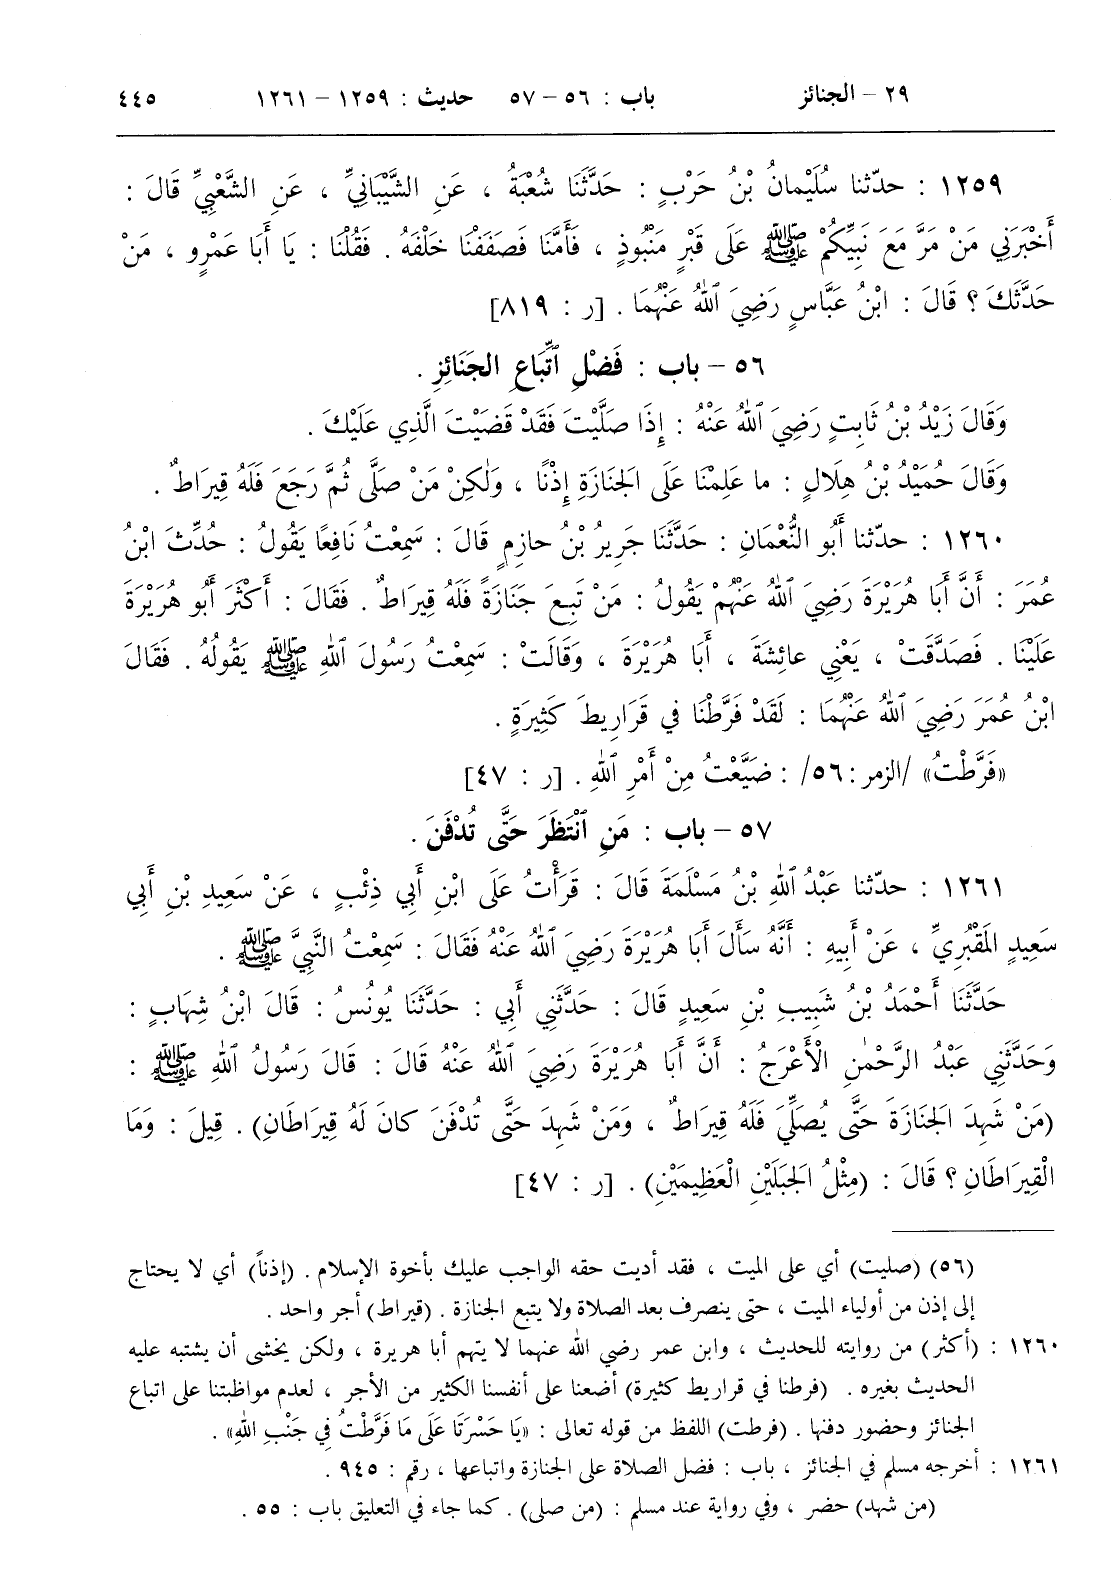 ٢٩ – الجنائز باب : ٥٦ – ٥٧ حديث : ١٢٥٩ – ١٢٦١ ٤٤٥
١٢٥٩ : حدّثنا سُلَيْمانُ بْنُ حَرْبٍ : حَدَّثَنَا شُعْبَةُ ، عَنِ الشَّيْبَانِيِّ ، عَنِ الشَّعْبِيِّ قَالَ :
أَخْبَرَنِي مَنْ مَرَّ مَعَ نَبِيِّكُمْ ﷺ عَلَى قَبْرٍ مَنْبُوذٍ ، فَأَمَّنَا فَصَفَفْنَا خَلْفَهُ . فَقُلْنَا : يَا أَبَا عَمْرٍو ، مَنْ
حَدَّثَكَ ؟ قَالَ : ابْنُ عَبَّاسٍ رَضِيَ ٱللهُ عَنْهُمَا . [ر : ٨١٩]
٥٦ – باب : فَضْلِ ٱتِّبَاعِ الجَنَائِزِ .
وَقَالَ زَيْدُ بْنُ ثَابِتٍ رَضِيَ ٱللهُ عَنْهُ : إِذَا صَلَّيْتَ فَقَدْ قَضَيْتَ الَّذِي عَلَيْكَ .
وَقَالَ حُمَيْدُ بْنُ هِلَالٍ : ما عَلِمْنَا عَلَى الجَنَازَةِ إِذْنًا ، وَلٰكِنْ مَنْ صَلَّى ثُمَّ رَجَعَ فَلَهُ قِيرَاطٌ .
١٢٦٠ : حدّثنا أَبُو النُّعْمَانِ : حَدَّثَنَا جَرِيرُ بْنُ حازِمٍ قَالَ : سَمِعْتُ نَافِعًا يَقُولُ : حُدِّثَ ابْنُ
عُمَرَ : أَنَّ أَبَا هُرَيْرَةَ رَضِيَ ٱللهُ عَنْهُمْ يَقُولُ : مَنْ تَبِعَ جَنَازَةً فَلَهُ قِيرَاطٌ . فَقَالَ : أَكْثَرَ أَبُو هُرَيْرَةَ
عَلَيْنَا . فَصَدَّقَتْ ، يَعْنِي عائِشَةَ ، أَبَا هُرَيْرَةَ ، وَقَالَتْ : سَمِعْتُ رَسُولَ ٱللهِ ﷺ يَقُولُهُ . فَقَالَ
ابْنُ عُمَرَ رَضِيَ ٱللهُ عَنْهُمَا : لَقَدْ فَرَّطْنَا فِي قَرَارِيطَ كَثِيرَةٍ .
«فَرَّطْتُ» /الزمر : ٥٦/ : ضَيَّعْتُ مِنْ أَمْرِ ٱللهِ . [ر : ٤٧]
٥٧ – باب : مَنِ ٱنْتَظَرَ حَتَّى تُدْفَنَ .
١٢٦١ : حدّثنا عَبْدُ ٱللهِ بْنُ مَسْلَمَةَ قَالَ : قَرَأْتُ عَلَى ابْنِ أَبِي ذِئْبٍ ، عَنْ سَعِيدِ بْنِ أَبِي
سَعِيدٍ المَقْبُرِيِّ ، عَنْ أَبِيهِ : أَنَّهُ سَأَلَ أَبَا هُرَيْرَةَ رَضِيَ ٱللهُ عَنْهُ فَقَالَ : سَمِعْتُ النَّبِيَّ ﷺ .
حَدَّثَنَا أَحْمَدُ بْنُ شَبِيبِ بْنِ سَعِيدٍ قَالَ : حَدَّثَنِي أَبِي : حَدَّثَنَا يُونُسُ : قَالَ ابْنُ شِهَابٍ :
وَحَدَّثَنِي عَبْدُ الرَّحْمٰنِ الْأَعْرَجُ : أَنَّ أَبَا هُرَيْرَةَ رَضِيَ ٱللهُ عَنْهُ قَالَ : قَالَ رَسُولُ ٱللهِ ﷺ :
(مَنْ شَهِدَ الجَنَازَةَ حَتَّى يُصَلِّيَ فَلَهُ قِيرَاطٌ ، وَمَنْ شَهِدَ حَتَّى تُدْفَنَ كانَ لَهُ قِيرَاطَانِ) . قِيلَ : وَمَا
الْقِيرَاطَانِ ؟ قَالَ : (مِثْلُ الجَبَلَيْنِ الْعَظِيمَيْنِ) . [ر : ٤٧]
(٥٦) (صليت) أي على الميت ، فقد أديت حقه الواجب عليك بأخوة الإسلام . (إذناً) أي لا يحتاج
إلى إذن من أولياء الميت ، حتى ينصرف بعد الصلاة ولا يتبع الجنازة . (قيراط) أجر واحد .
١٢٦٠ : (أكثر) من روايته للحديث ، وابن عمر رضي الله عنهما لا يتهم أبا هريرة ، ولكن يخشى أن يشتبه عليه
الحديث بغيره . (فرطنا في قراريط كثيرة) أضعنا على أنفسنا الكثير من الأجر ، لعدم مواظبتنا على اتباع
الجنائز وحضور دفنها . (فرطت) اللفظ من قوله تعالى : «يَا حَسْرَتَا عَلَى مَا فَرَّطْتُ فِي جَنْبِ اللهِ» .
١٢٦١ : أخرجه مسلم في الجنائز ، باب : فضل الصلاة على الجنازة واتباعها ، رقم : ٩٤٥ .
(من شهد) حضر ، وفي رواية عند مسلم : (من صلى) . كما جاء في التعليق باب : ٥٥ .